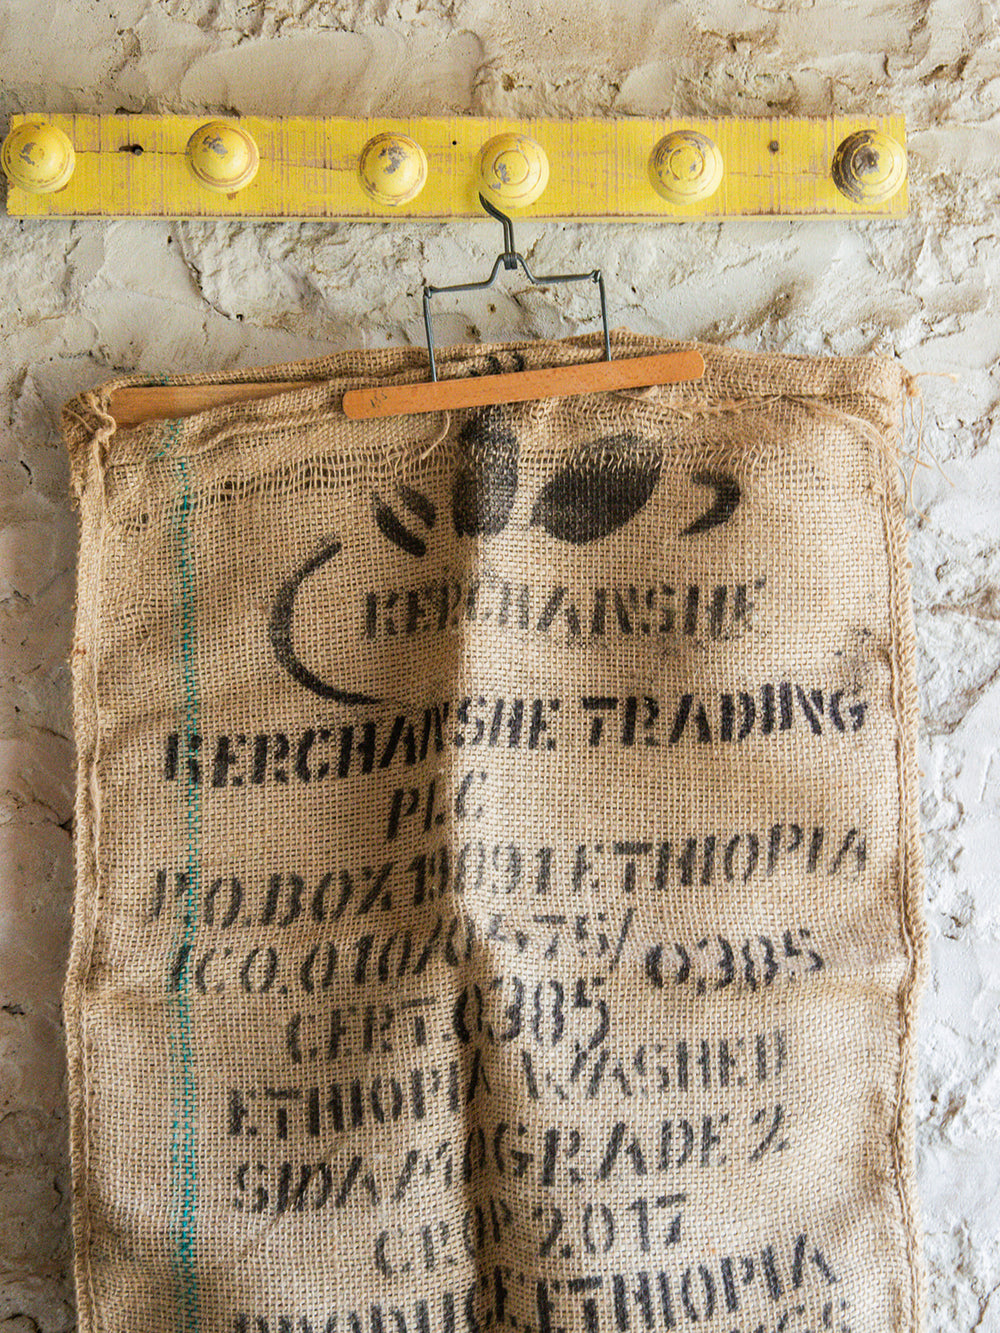 KERCHANSHE
KERCHANSHE TRADING
PLC
P.O.BOX 19091 ETHIOPIA
ICO.010/0475/0385
CERT.0385
ETHIOPIA WASHED
SIDAMO GRADE 2
CROP 2017
PRODUCE ETHIOPIA